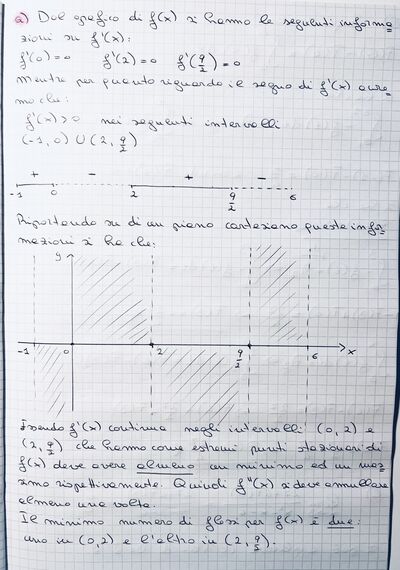 a) Dal grafico di f(x) si hanno le seguenti informa-
zioni su f'(x):
f'(0)=0 f'(2)=0 f'(9/2)=0
Mentre per quanto riguarda il segno di f'(x) avre-
mo che:
f'(x)>0 nei seguenti intervalli
(-1,0) ∪ (2, 9/2)
+ - + -
-1 0 2 9/2 6
Riportando su di un piano cartesiano queste infor-
mazioni si ha che:
y
-1 0 2 9/2 6 x
Essendo f'(x) continua negli intervalli (0,2) e
(2, 9/2) che hanno come estremi punti stazionari di
f(x) deve avere almeno un minimo ed un mas-
simo rispettivamente. Quindi f''(x) si deve annullare
almeno una volta.
Il minimo numero di flessi per f(x) è due:
uno in (0,2) e l'altro in (2, 9/2).